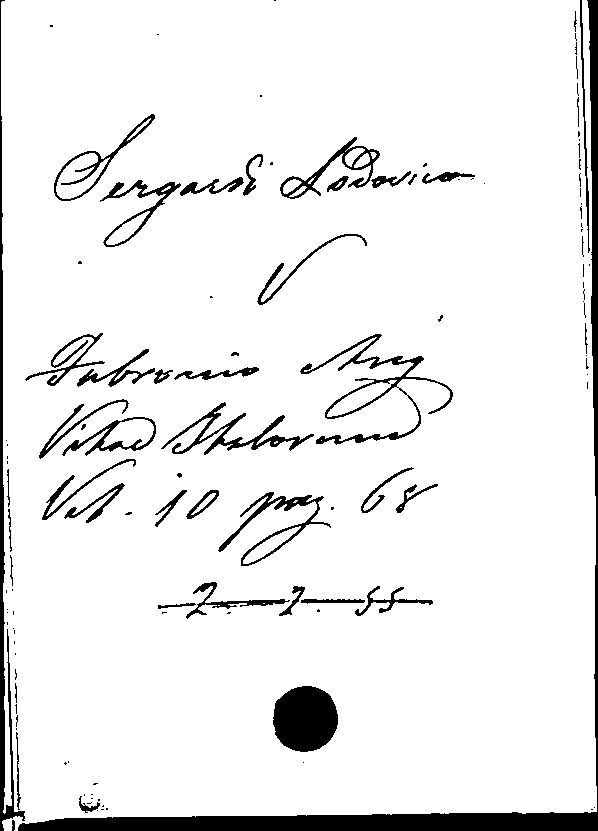 Sergardi Lodovico
V
Fabronio Ang
Vitae Italorum
Vol. 10 pag. 68
2 2. 55